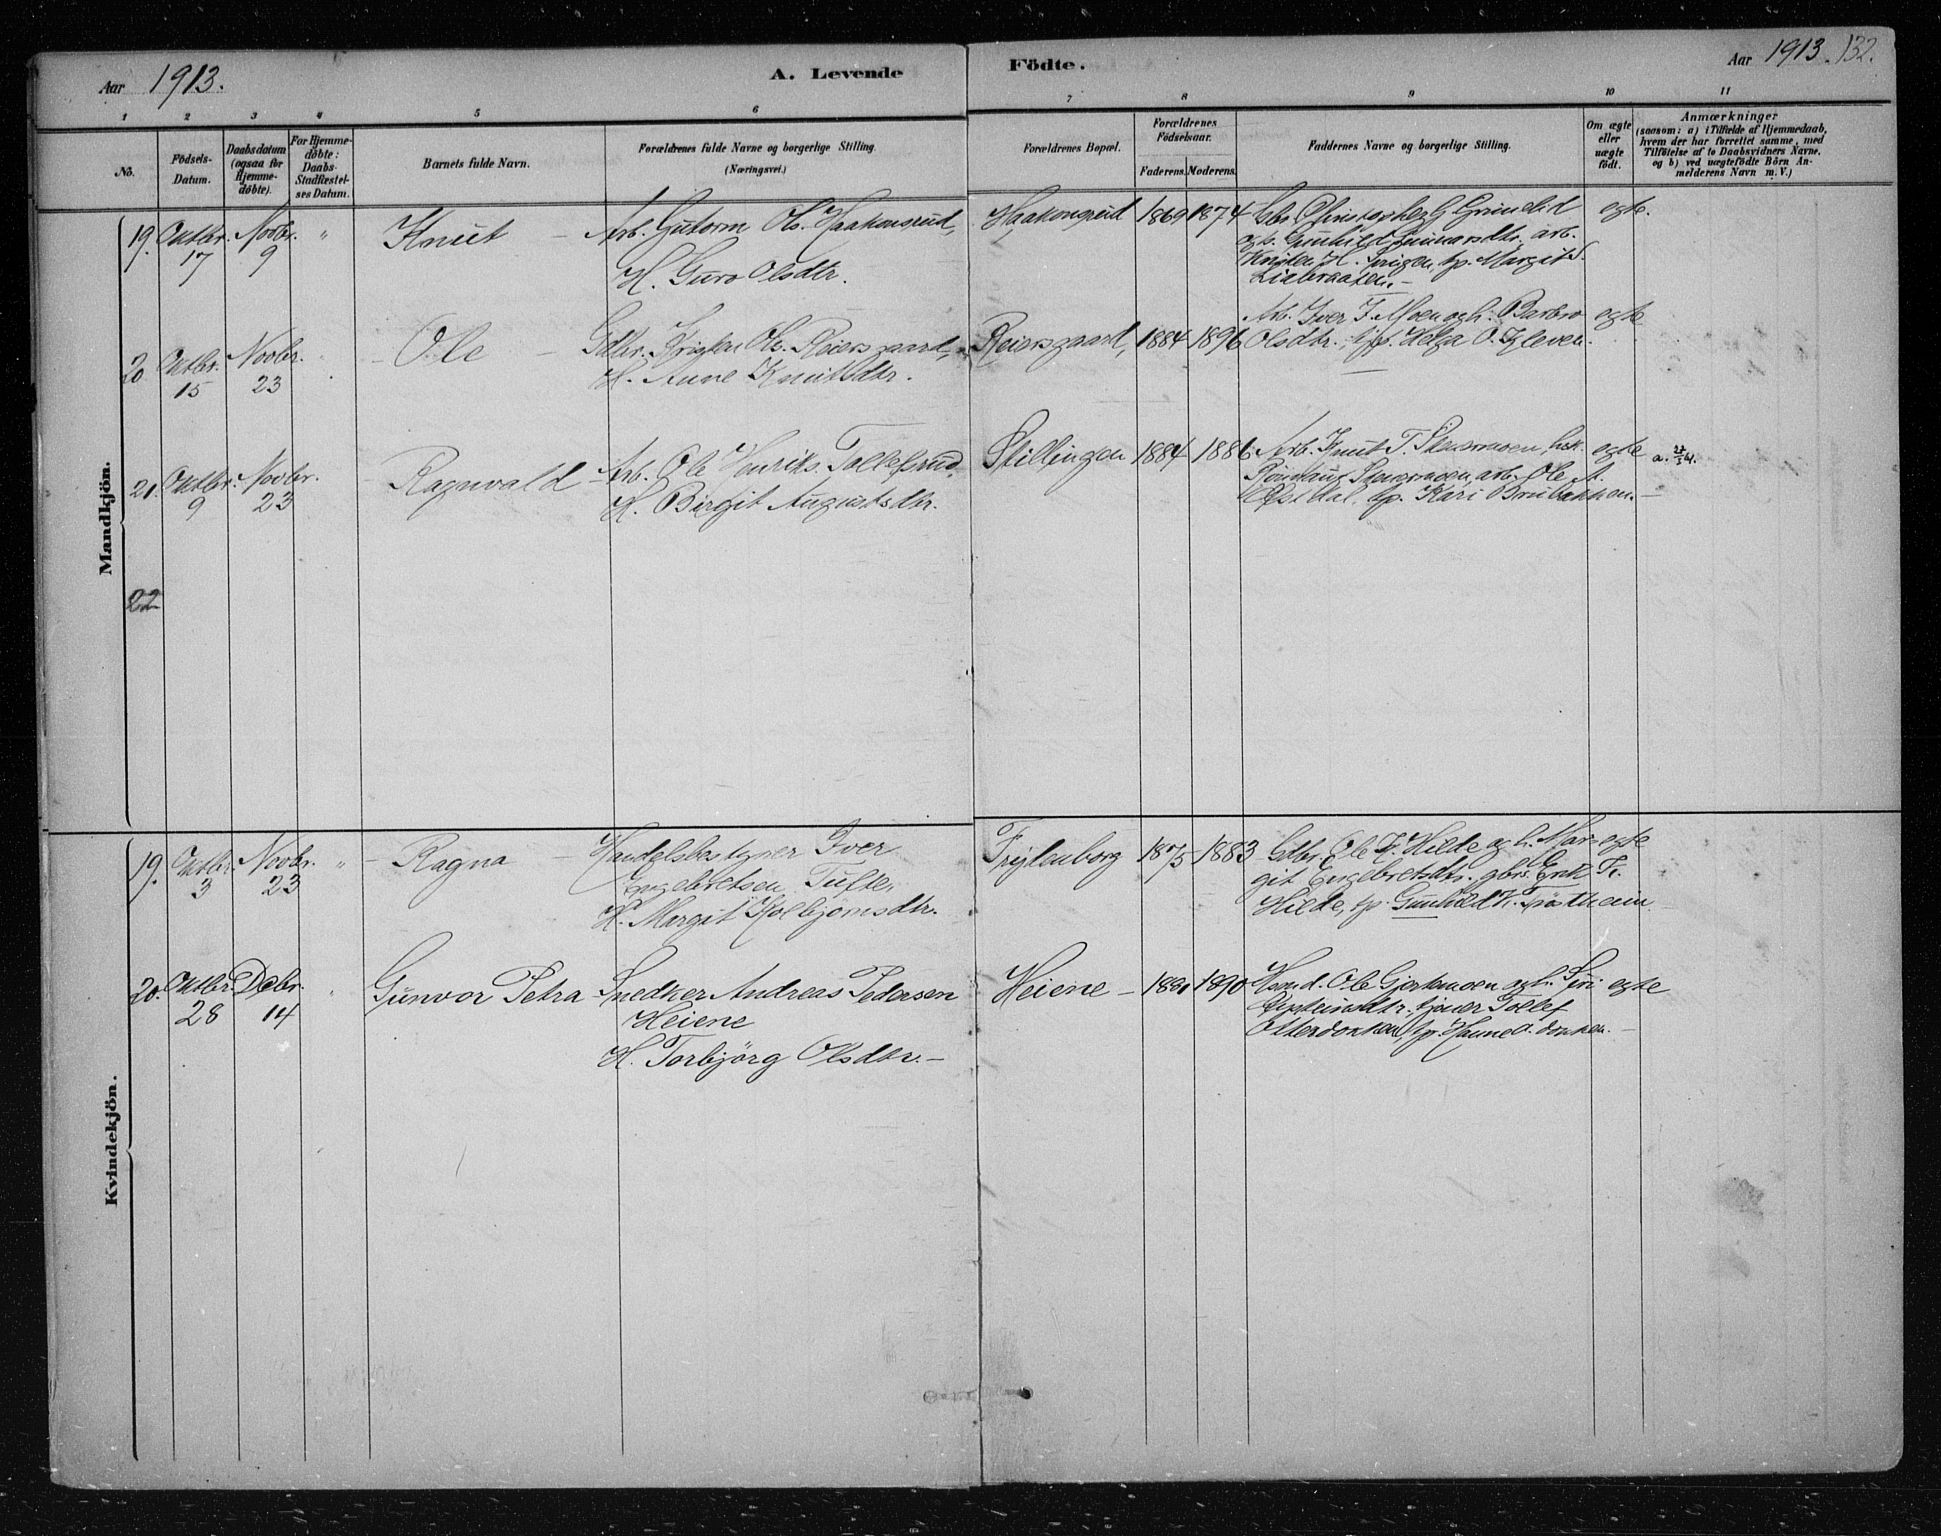 Aar 1913.
A. Levende
Födte.
Aar 1913. 132.
1 2 3 4 5 6 7 8 9 10 11
No.
Födsels-Datum.
Daabsdatum (ogsaa før Hjemme-døbte).
For Hjemme-døbte: Daabs-Stadfæstel-ses Datum.
Barnets fulde Navn.
Forældrenes fulde Navne og borgerlige Stilling.
(Næringsvei.)
Forældrenes Bopæl.
Forældrenes Födselsaar.
Faderens. Moderens.
Faddernes Navne og borgerlige Stilling.
Om ægte eller uægte födt.
Anmærkninger
(saasom: a) i Tilfælde af Hjemmedaab,
hvem der har forrettet samme, med
Tilföielse af to Daabsvidners Navne,
og b) ved uægtefödte Börn An-
melderens Navn m. V.)
Mandkjön.
19. Oktbr. 17 Novbr. 9 " Knut – Arb. Gutorm Ols. Haakonsrud,
H. Guro Olsdtr.
Haakonsrud 1869 1874
Gunhild Gunnarsdtr. arb.
H. tp. Margit
egte.
20 Oktbr. 15 Novbr. 23 – Ole – Gdbr. Kristen Ols. Reiersgaard,
H. Anne Knutsdtr.
Reiersgaard, 1884 1896
Arb. Iver T. Moen og h. Barbro
Olsdtr., tp. Helga O. Kleven.
egte
21. Oktbr. 9 Novbr. 23 – Ragnvald – Arb. Ole Henriks. Tollefsrud,
H. Birgit Augustsdtr.
Stillingen 1884 1886
Arb. Knut T.
arb. Ole A.
tp. Kari Brubakken. –
egte
22
Kvindekjön.
19. Oktbr. 3 Novbr. 23 " – Ragna – Handelsbestyrer Iver
Engebretsen Tufte,
H. Margit Kolbjørnsdtr.
Frejlenborg 1875 1883
Gdbr. Ole T. Hilde og h. Mar-
git Engebretsdtr. gbrs. Erik T.
Hilde, tp. Gunhild K. Trøstheim
egte
20. Oktbr. 28 Debr. 14 " Gunvor Petra – Snedker Andreas Pedersen
Heiene
H. Torbjörg Olsdtr. –
Heiene – 1880 1890
Ole og h.
Tollef
tp. Hanne
egte